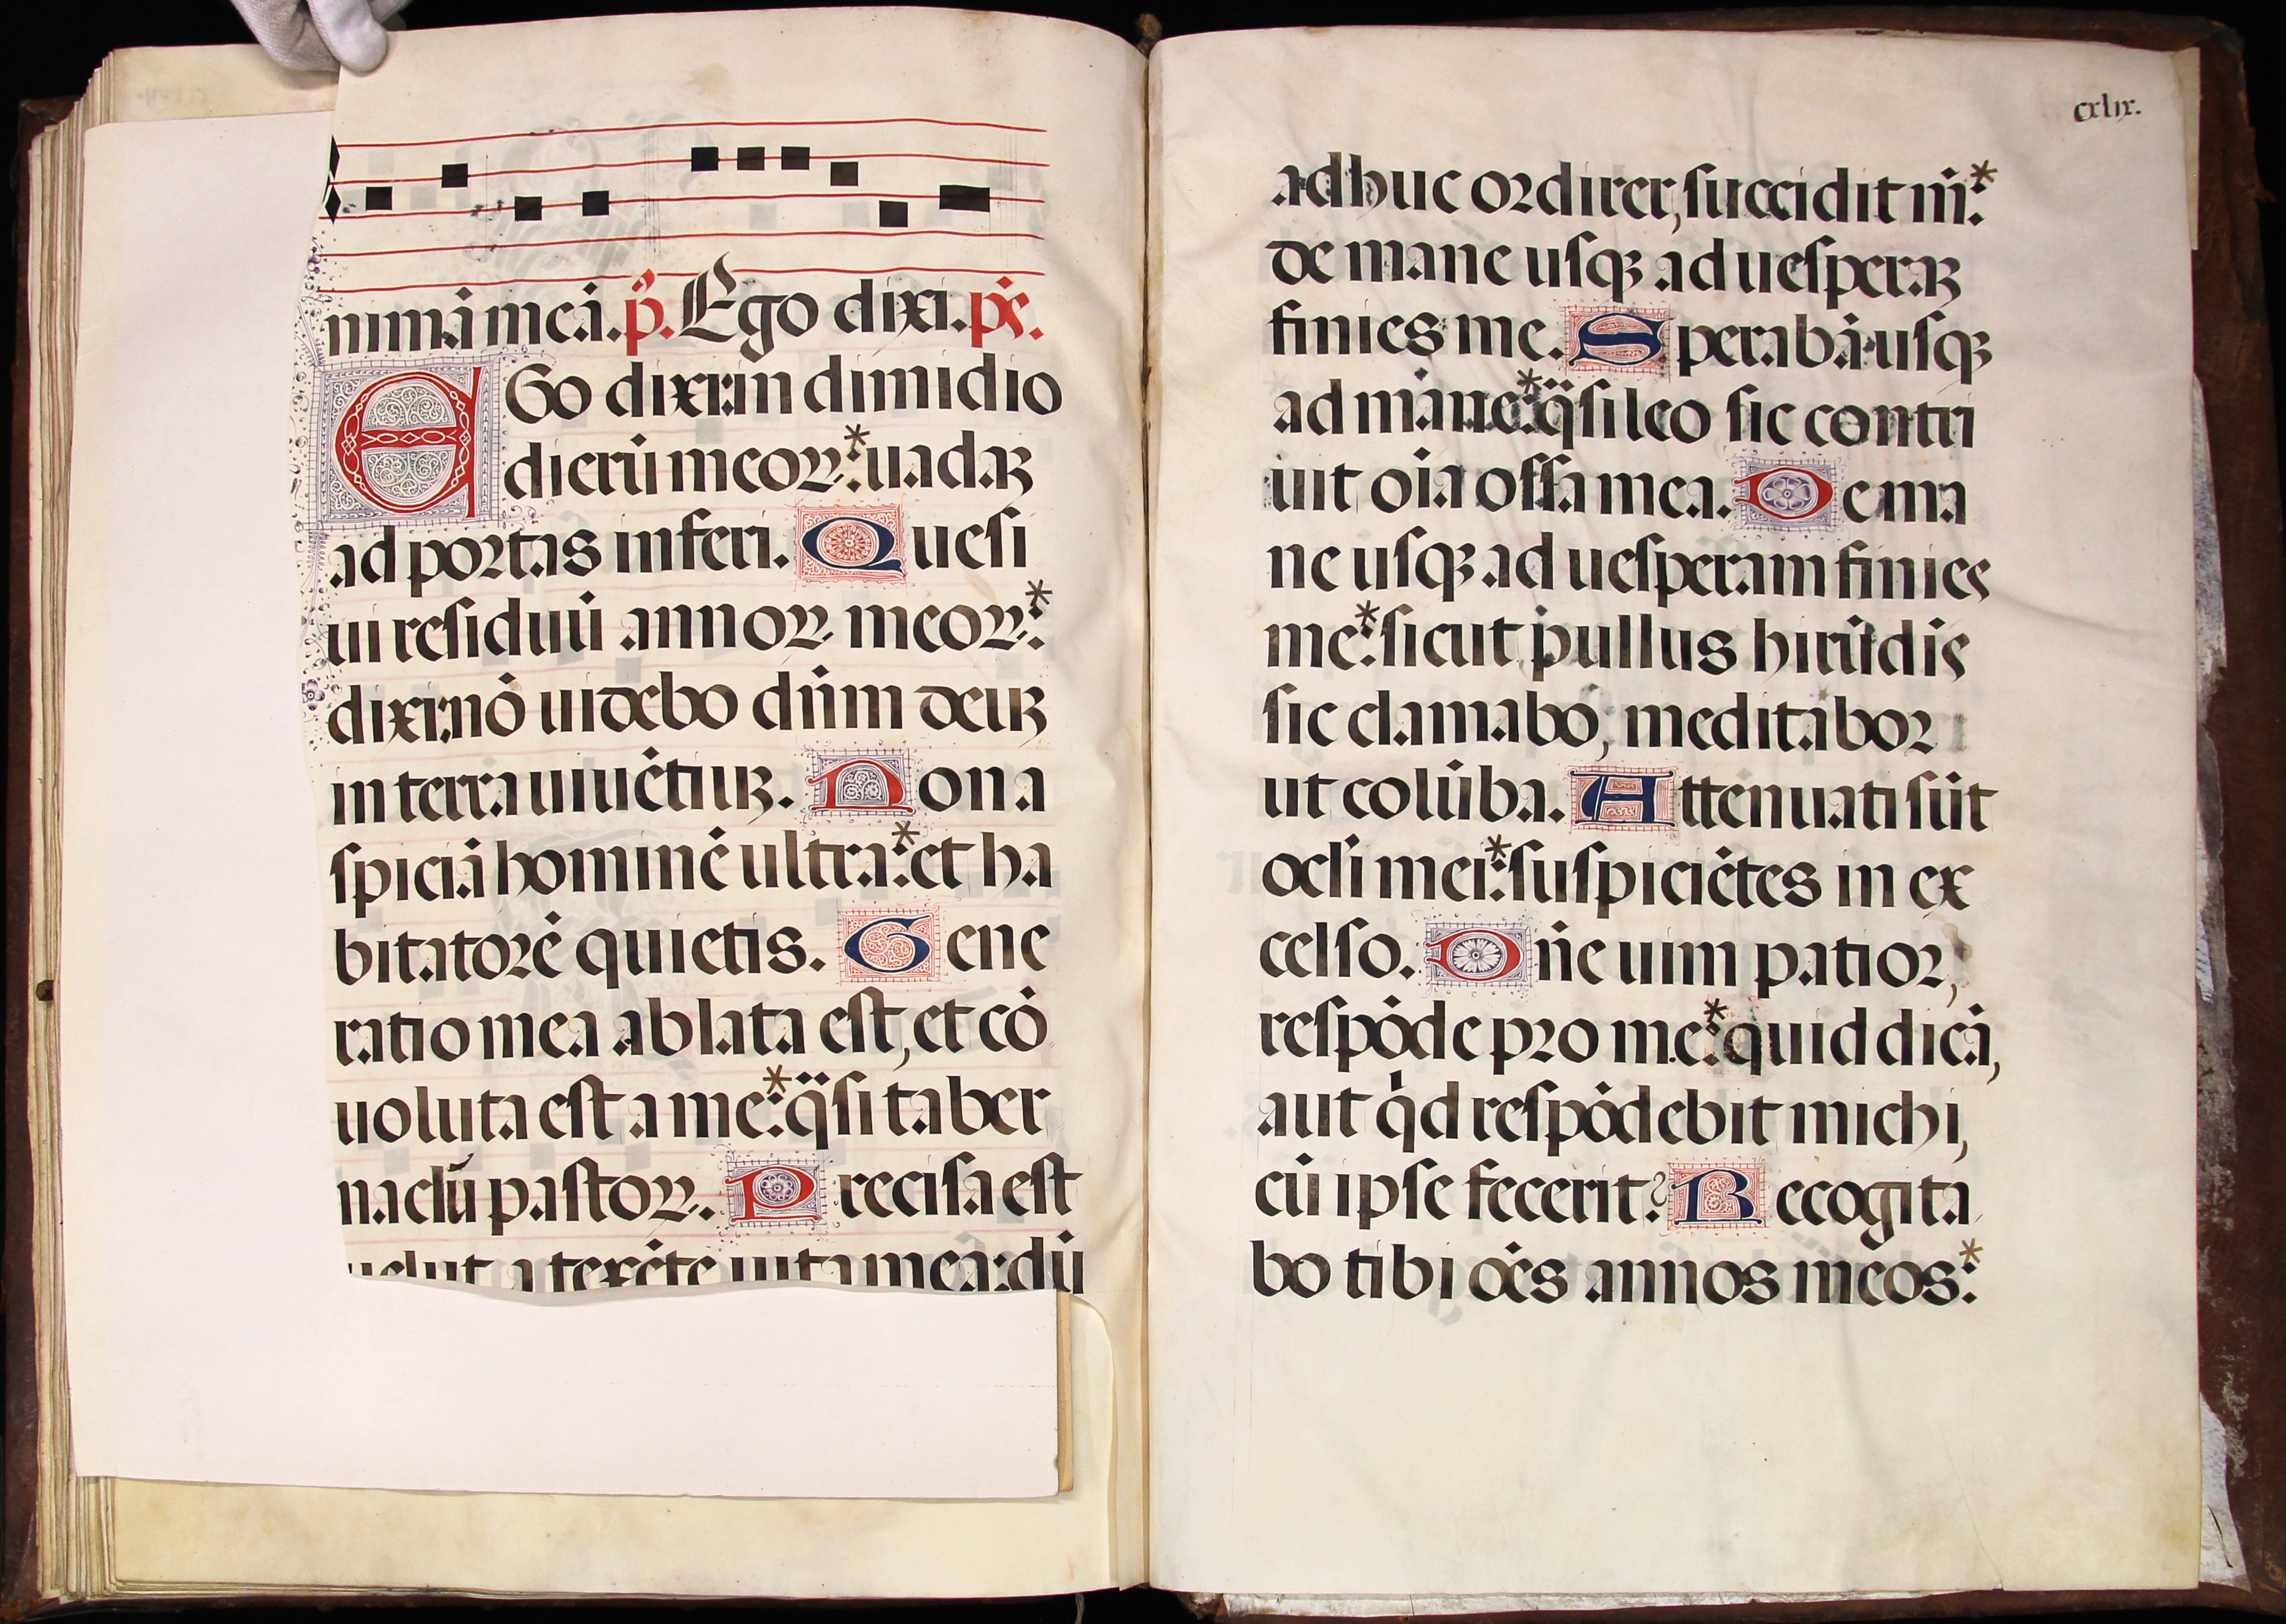 nimā meā. p̄. Ego dixi. p̄s.
EGo dixi: in dimidio
dierū meoꝝ:* uadaꝫ
ad portas inferi. Quesi
ui residuū annoꝝ meoꝝ:*
dixi: nō uidebo dūm deuꝫ
in terra uiuētiuꝫ. Non a
spiciā hominē ultra:* et ha
bitatorē quietis. Gene
ratio mea ablata est, et cō
uoluta est a me:* q̈si taber
naclū pastoꝝ. Precisa est
uelut a texēte uita mea: dū
cxlix.
adhuc ordirer, succidit m̄:*
de mane usqꝫ ad uesperaꝫ
finies me. Sperabā usqꝫ
ad mane:* q̈si leo sic contri
uit oīa ossa mea. De ma
ne usqꝫ ad uesperam finies
me:* sicut pullus hirūdis
sic clamabo, meditabor
ut colūba. Attenuati sūt
oclī mei:* suspiciētes in ex
celso. Dn̄e uim patior,
respōde pro me:* quid dicā,
aut qͥd respōdebit michi,
cū ipse fecerit? Recogita
bo tibi oēs annos meos:*